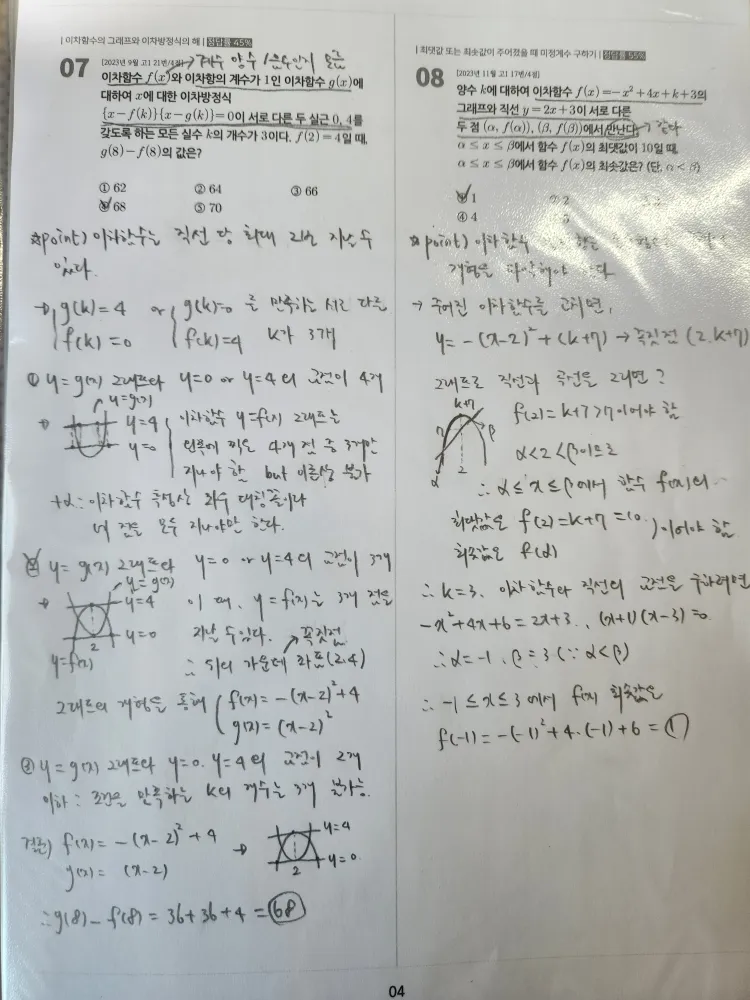 | 이차함수의 그래프와 이차방정식의 해 | 정답률 45%
07 [2023년 9월 고1 21번/4점] → 계수 양수 음수인지 모름
이차함수 f(x)와 이차항의 계수가 1인 이차함수 g(x)에
대하여 x에 대한 이차방정식
{x−f(k)}{x−g(k)}=0이 서로 다른 두 실근 0, 4를
갖도록 하는 모든 실수 k의 개수가 3이다. f(2)=4일 때,
g(8)−f(8)의 값은?
① 62 ② 64 ③ 66
④ 68 ⑤ 70
☆point) 이차함수는 직선 당 최대 2번 지날 수
있다.
→ g(k)=4 or g(k)=0 를 만족하는 서로 다른
f(k)=0 f(k)=4 k가 3개
① y=g(x) 그래프와 y=0 or y=4의 교점이 4개
y=g(x)
y=4
y=0
이차함수 y=f(x) 그래프는
왼쪽에 찍은 4개 점 중 3개만
지나야 함 but 이론상 불가
+α: 이차함수 특성상 좌우 대칭꼴이라
네 점을 모두 지나야만 한다.
② y=g(x) 그래프와 y=0 or y=4의 교점이 3개
y=g(x)
y=4
y=0
2
y=f(x)
이 때, y=f(x)는 3개 점을
지날 수 있다. 꼭짓점
∴ f의 가운데 좌표(2,4)
그래프의 개형을 통해 f(x)=−(x−2)²+4
g(x)=(x−2)²
③ y=g(x) 그래프와 y=0, y=4의 교점이 2개
이하: 조건을 만족하는 k의 개수는 3개 불가능.
결론) f(x)=−(x−2)²+4
g(x)= (x−2)
y=4
y=0
2
∴g(8)−f(8)=36+36+4=68
| 최댓값 또는 최솟값이 주어졌을 때 미정계수 구하기 | 정답률 55%
08 [2023년 11월 고1 17번/4점]
양수 k에 대하여 이차함수 f(x)=−x²+4x+k+3의
그래프와 직선 y=2x+3이 서로 다른
두 점 (α, f(α)), (β, f(β))에서 만난다. → 같다
α≤x≤β에서 함수 f(x)의 최댓값이 10일 때,
α≤x≤β에서 함수 f(x)의 최솟값은? (단, α<β)
① 1 ② 2
④ 4
☆point) 이차함수
개형을 파악해야 한다.
→ 주어진 이차함수를 고치면,
y=−(x−2)²+(k+7) → 꼭짓점 (2, k+7)
그래프로 직선과 곡선을 그리면?
k+7
7
β
α
2
f(2)=k+7>7이어야 함
α<2<β이므로
∴ α≤x≤β에서 함수 f(x)의
최댓값은 f(2)=k+7=10
최솟값은 f(α)
이어야 함.
∴ k=3. 이차함수와 직선의 교점을 구하려면
−x²+4x+6=2x+3., (x+1)(x−3)=0
∴α=−1, β=3(∵ α<β)
∴ −1≤x≤3에서 f(x) 최솟값은
f(−1)=−(−1)²+4·(−1)+6=①
04